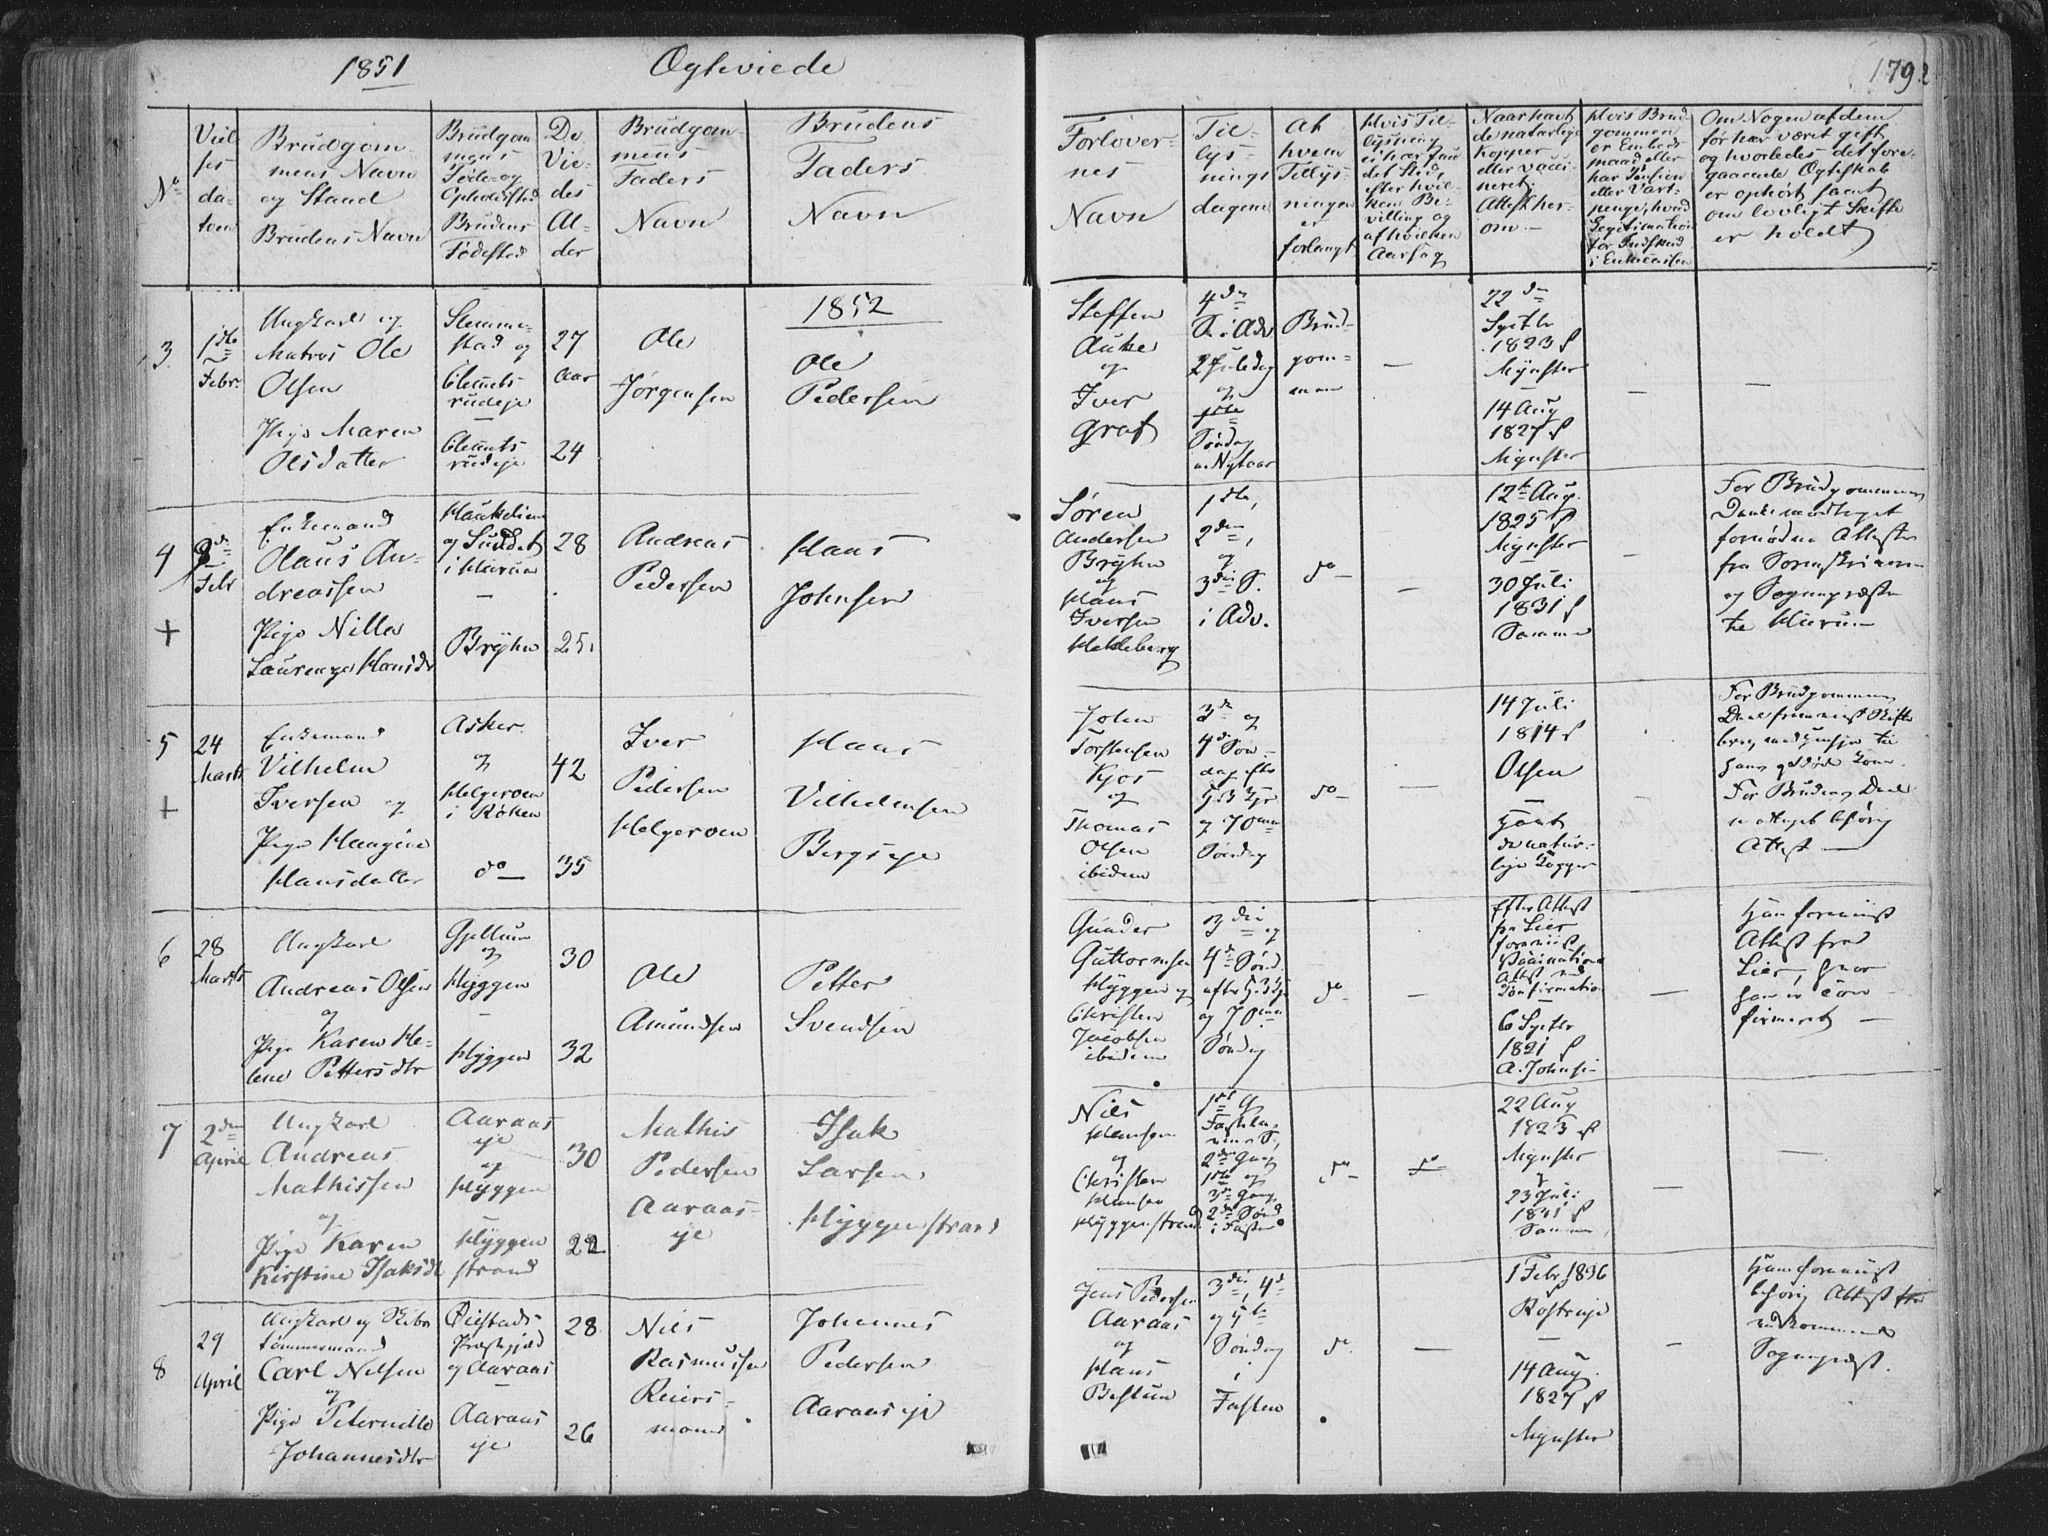 1851
Ægteviede
179.2
No
Viel-
ses
da-
tum
Brudgom-
mens Navn
og Stand
Brudens Navn
Brudgom
mens
Føde- og
Opholdsted
Brudens
Fødested
De
Vie-
des
Al-
der
Brudgom-
mens
Faders
Navn
Brudens
Faders
Navn
Forlover-
nes
Navn
Til-
lys-
nings
dagene
Af
hvem
Tillys-
ningen
er
forlangt
Hvis Til-
lysning
ei har fun
det Sted,
efter hvil-
ken Be-
villing og
af hvilken
Aarsag
Naar havt
de naturlige
Kopper
eller vacci-
neret.
Attest her-
om.
Hvis Brud
gommen
er Embeds
mand eller
har Pension
eller Vart-
penge, hvad
Legitimation
for Indskud
i Enkecassen
Om Nogen af dem
før har været gift
og hvorledes det fore-
gaaende Ægteskab
er ophørt samt
om lovligt Skifte
er holdt
3.
1ste
Febr.
Ungkarl og
Matros Ole
Olsen
Pige Maren
Olsdatter
Slemme-
stad og
Clemets-
rudeje
Clemets
rudeje
27
Aar
24
Ole
Jørgensen
1852
Ole
Pedersen
Steffen
Auke
og
Iver
Graf
4de
S. i Adv
2 Juledag
og
1ste
Søndag
e. Nytaar
Brud-
gom-
men
—
22de
Septbr
1823 f
Mynster
14 Aug
1827 f
Mynster
—
—
4
+
Febr
Enkemand
Olaus An-
dreassen
Pige Nilla
Laurenza Hansdr
Haukeliene
og Sundet
i Hurum
—
Bryhn
28
25
Andreas
Pedersen
Hans
Johnsen
Søren
Andersen
Bryhn
og
Hans
Iversen
Hekleberg
1ste,
2den,
og
3die S.
i Adv.
do
—
12te Aug.
1825 f
Mynster
30 Juli
1831 f
Samme
—
For Brudgommens
Deel modtaget
fornødne Attester
fra Sorenskriveren
og Sognepræsten
til Hurum
5
+
24
Marts
Enkemand
Vilhelm
Iversen og
Pige Hangine
Hansdatter
Asker
og
Helgeroen
i Røken
do
42
35
Iver
Pedersen
Helgeroen
Hans
Vilhelmsen
Bergseje
John
Torstensen
Kjos
og
Thomas
Olsen
ibidem
3die og
4de Søn-
dag efter
H. 3 Kgr
og 70mo
Søndag
do
—
14 Juli
1814 f
Olsen
—
havt
de natur-
lige Kopper
For Brudgommens
Deel fremviist Skifte
brev med Hensyn til
hans afdøde Kone.
For Brudens Deel
modtaget behørig
Attest —
6
28
Marts
Ungkarl
Andreas Olsen
og
Pige Karen He-
lene Pettersdtr
Gjellum
og
Hyggen
—
Hyggen
30
32
Ole
Amundsen
Petter
Svendsen
Gunder
Guttormsen
Hyggen og
Christen
Jacobsen
ibidem
3die og
4de Sønd.
efter H. 3 Kgr
og 70mo
Søndag
do
—
Efter Attest
fra Lier
fremviist
Vaccinations
Attest ved
Confirmation
6 Septbr
1821 f
A. Johnsen
—
Han fremviist
Attest fra
Lier, hvor
han er con-
firmeret —
7
2den
April
Ungkarl
Andreas
Mathissen
og
Pige Karen
Kirstine Isaksdr
Aaraas
eje
og
Hyggen
Hyggen
strand
30
22
Mathis
Pedersen
Aaraas-
eje
Isak
Larsen
Hyggenstrand
Niels
Hansen
og
Christian
Hansen
Hyggenstrand
1ste G
Fastela-
vens S.,
2den Gang
1ste og
3die Gang
2den Sønd
i Fasten
do
do
22 Aug
1823 f
Mynster
23 Juli
f
Samme
—
—
8
29
April
Ungkarl og Skibs
tømmermand
Carl Nilsen
og
Pige Pernille
Johannesdtr
Øiestads
Præstegjæld
og Aaraas
Aaraas
eje
28
26
Niels
Rasmussen
Reiers-
moen
Johannes
Pedersen
Aaraaseje
Jens Pedersen
Aaraas
og
Hans
Bestum
3die, 4de
og 5te
Søndag
i
Fasten
do
—
1 Febr 1836
Rostrup
—
14 Aug
1827 f
Mynster
—
Han fremviist
behørig Attest fra
vedkommende
Sognepræst.